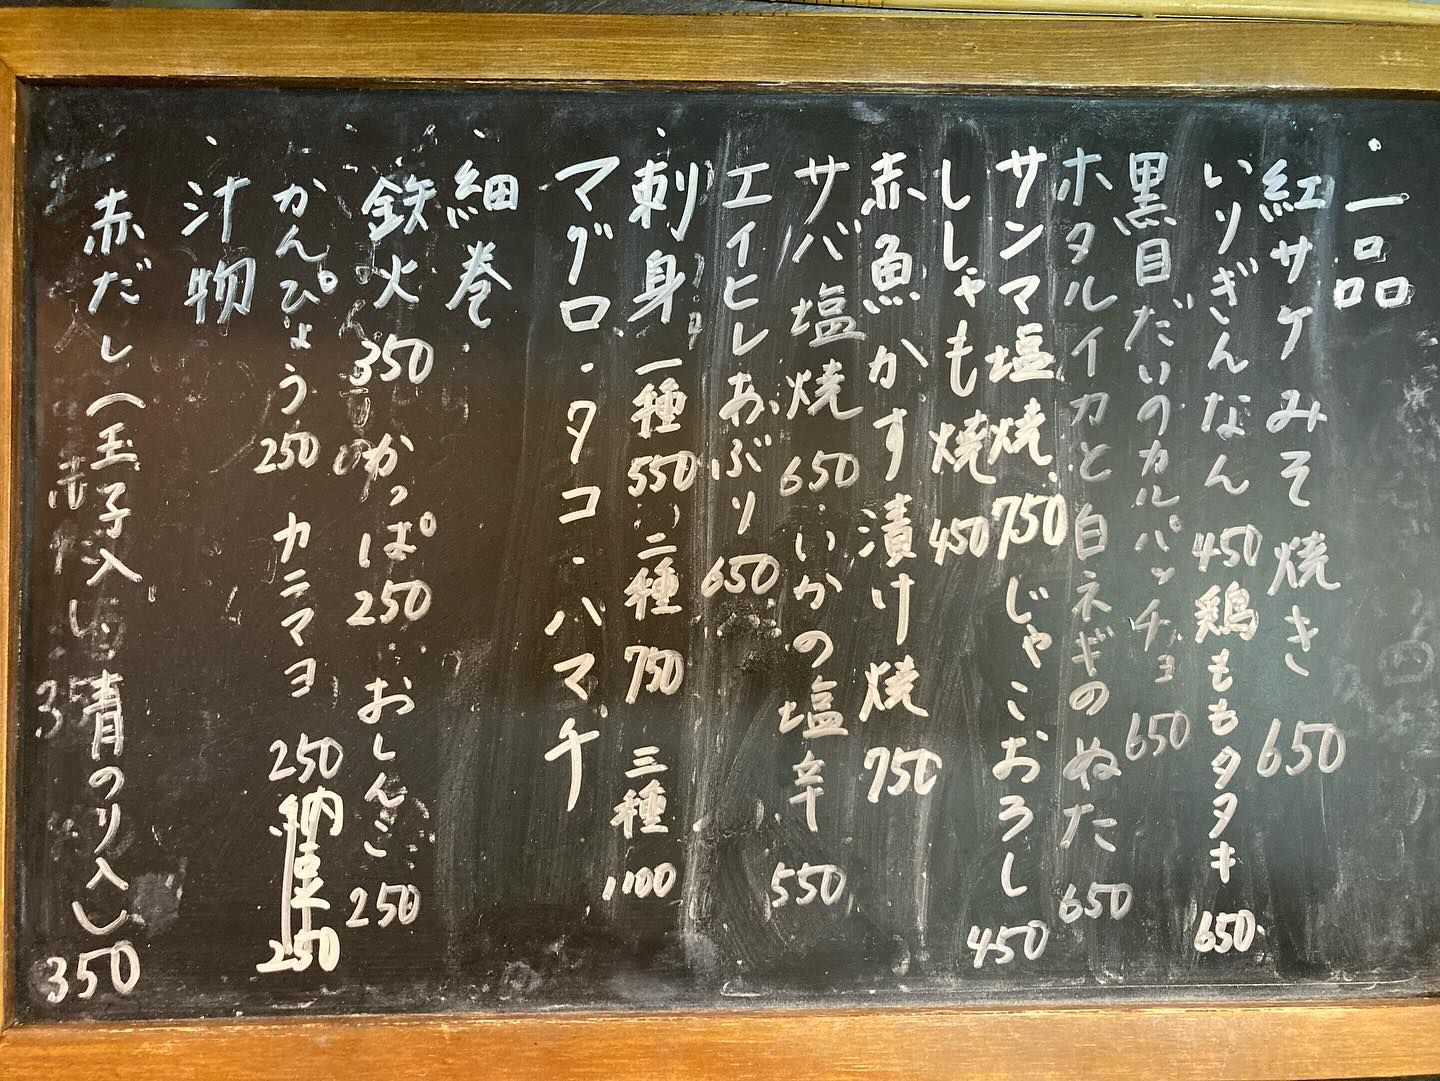 ・一品
紅サケみそ焼き 650
いりぎんなん 450 鶏ももタタキ 650
黒目だいのカルパッチョ 650
ホタルイカと白ネギのぬた 650
サンマ塩焼 750 じゃこおろし 450
ししゃも焼 450
赤魚かす漬け焼 750
サバ塩焼 650 いかの塩辛 550
エイヒレあぶり 650
・刺身 一種 550 二種 750 三種 1,100
マグロ・タコ・ハマチ
・細巻
鉄火 350 かっぱ 250 おしんこ 250
かんぴょう 250 カニマヨ 250 納豆 250
・汁物
赤だし(玉子入り 青のり入) 350